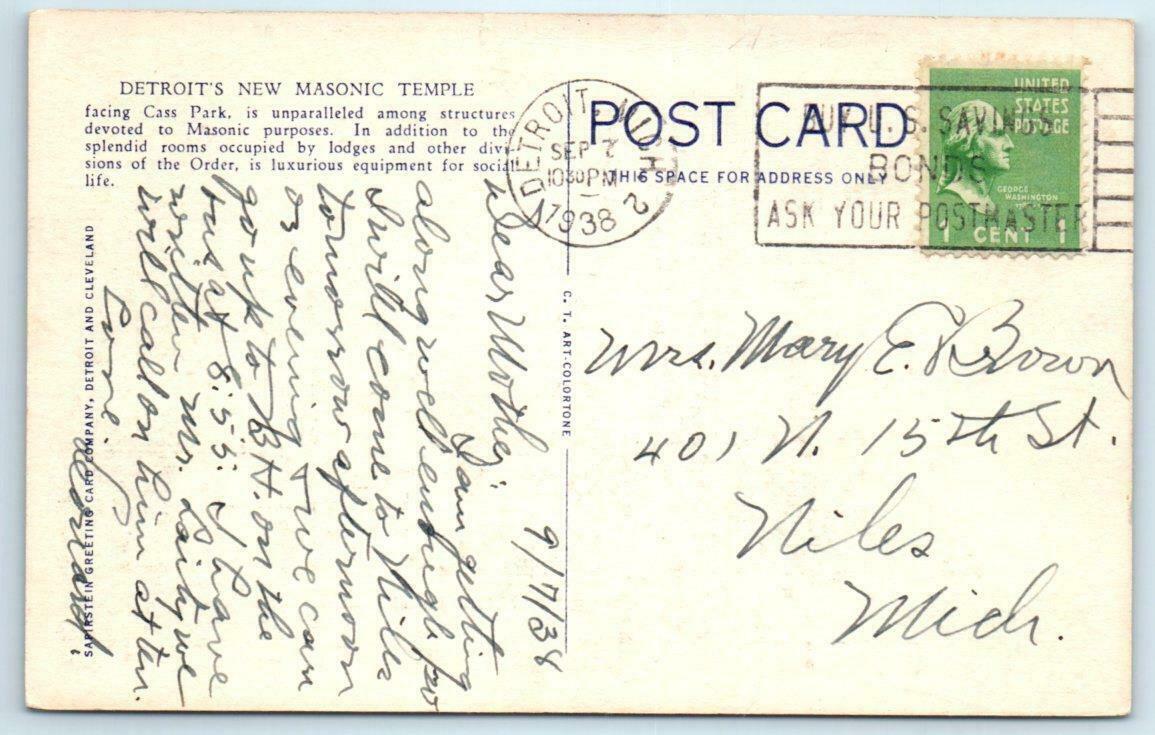 DETROIT'S NEW MASONIC TEMPLE
facing Cass Park, is unparalleled among structures
devoted to Masonic purposes. In addition to the
splendid rooms occupied by lodges and other divi-
sions of the Order, is luxurious equipment for social
life.
SAPIRSTEIN GREETING CARD COMPANY, DETROIT AND CLEVELAND
C. T. ART-COLORTONE
POST CARD
THIS SPACE FOR ADDRESS ONLY
DETROIT, MICH
SEP 7
10 30 PM
1938
2
BUY U. S. SAVINGS
BONDS
ASK YOUR POSTMASTER
UNITED
STATES
POSTAGE
GEORGE
WASHINGTON
1 CENT 1
9/7/38
Dear Mother;
I am getting
along well enough so
I will come to Niles
tomorrow afternoon
or evening & we can
go up to B.H. on the
bus at 8:55. I have
written Mr. we
will call on him at ten.
Love,
Leonard.
Mrs. Mary E. Brown
401 N. 15th St.
Niles
Mich.